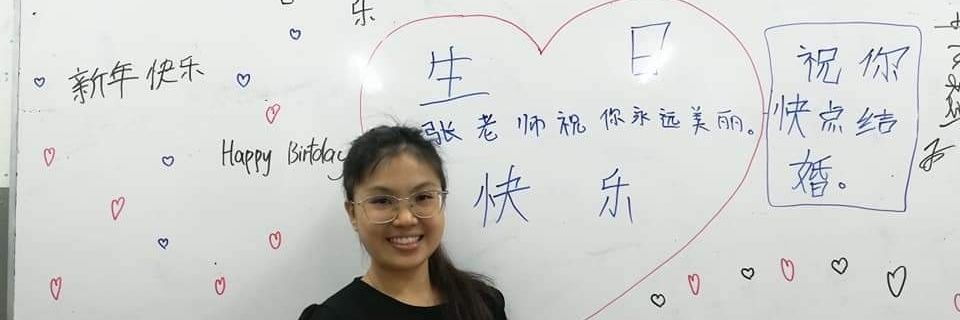 乐
新年快乐
Happy Birtday
生 日
张老师祝你永远美丽。
快 乐
祝你
快点结
婚。